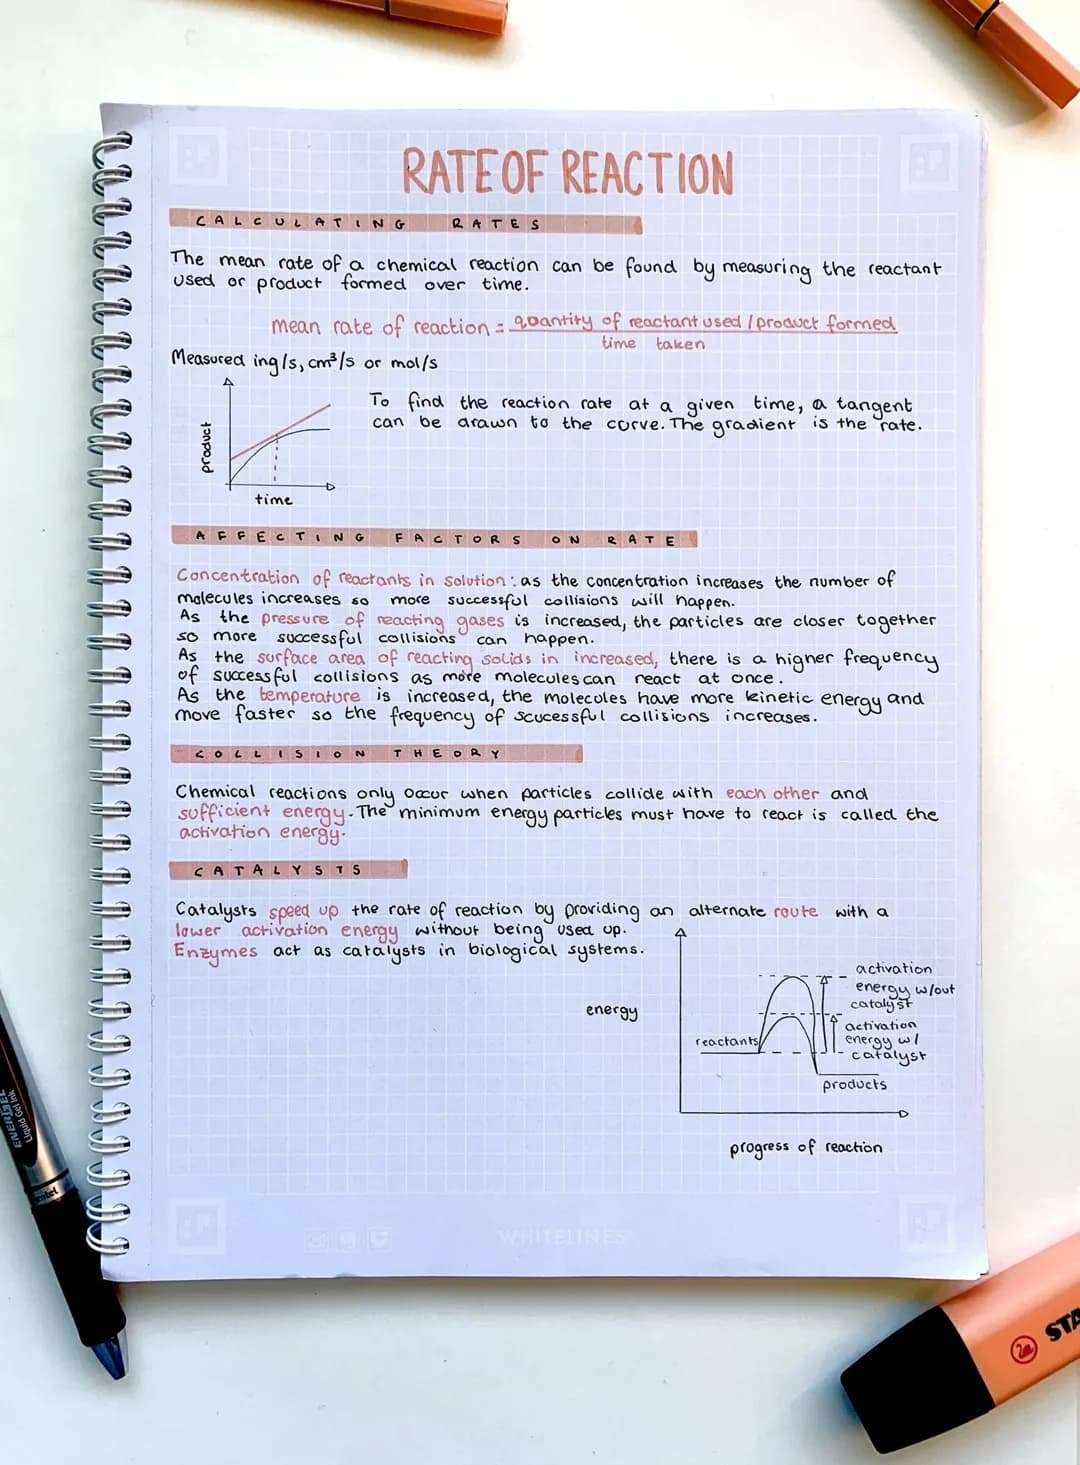 RATE OF REACTION
CALCULATING RATES
The mean rate of a chemical reaction can be found by measuring the reactant
used or product formed over time.
mean rate of reaction = quantity of reactant used / product formed
time taken
Measured in g/s, cm³/s or mol/s
To find the reaction rate at a given time, a tangent
can be drawn to the curve. The gradient is the rate.
product
time
AFFECTING FACTORS ON RATE
Concentration of reactants in solution: as the concentration increases the number of
molecules increases so more successful collisions will happen.
As the pressure of reacting gases is increased, the particles are closer together
so more successful collisions can happen.
As the surface area of reacting solids in increased, there is a higher frequency
of successful collisions as more molecules can react at once.
As the temperature is increased, the molecoles have more kinetic energy and
move faster so the frequency of scucessful collisions increases.
COLLISION THEORY
Chemical reactions only occur when particles collide with each other and
sufficient energy. The minimum energy particles must have to react is called the
activation energy.
CATALYSTS
Catalysts speed up the rate of reaction by providing an alternate route with a
lower activation energy without being used up.
Enzymes act as catalysts in biological systems.
energy
reactants
activation
energy w/out
catalyst
activation
energy w/
catalyst
products
progress of reaction
WHITELINES
ENERGEL
Liquid Gel Ink
STA